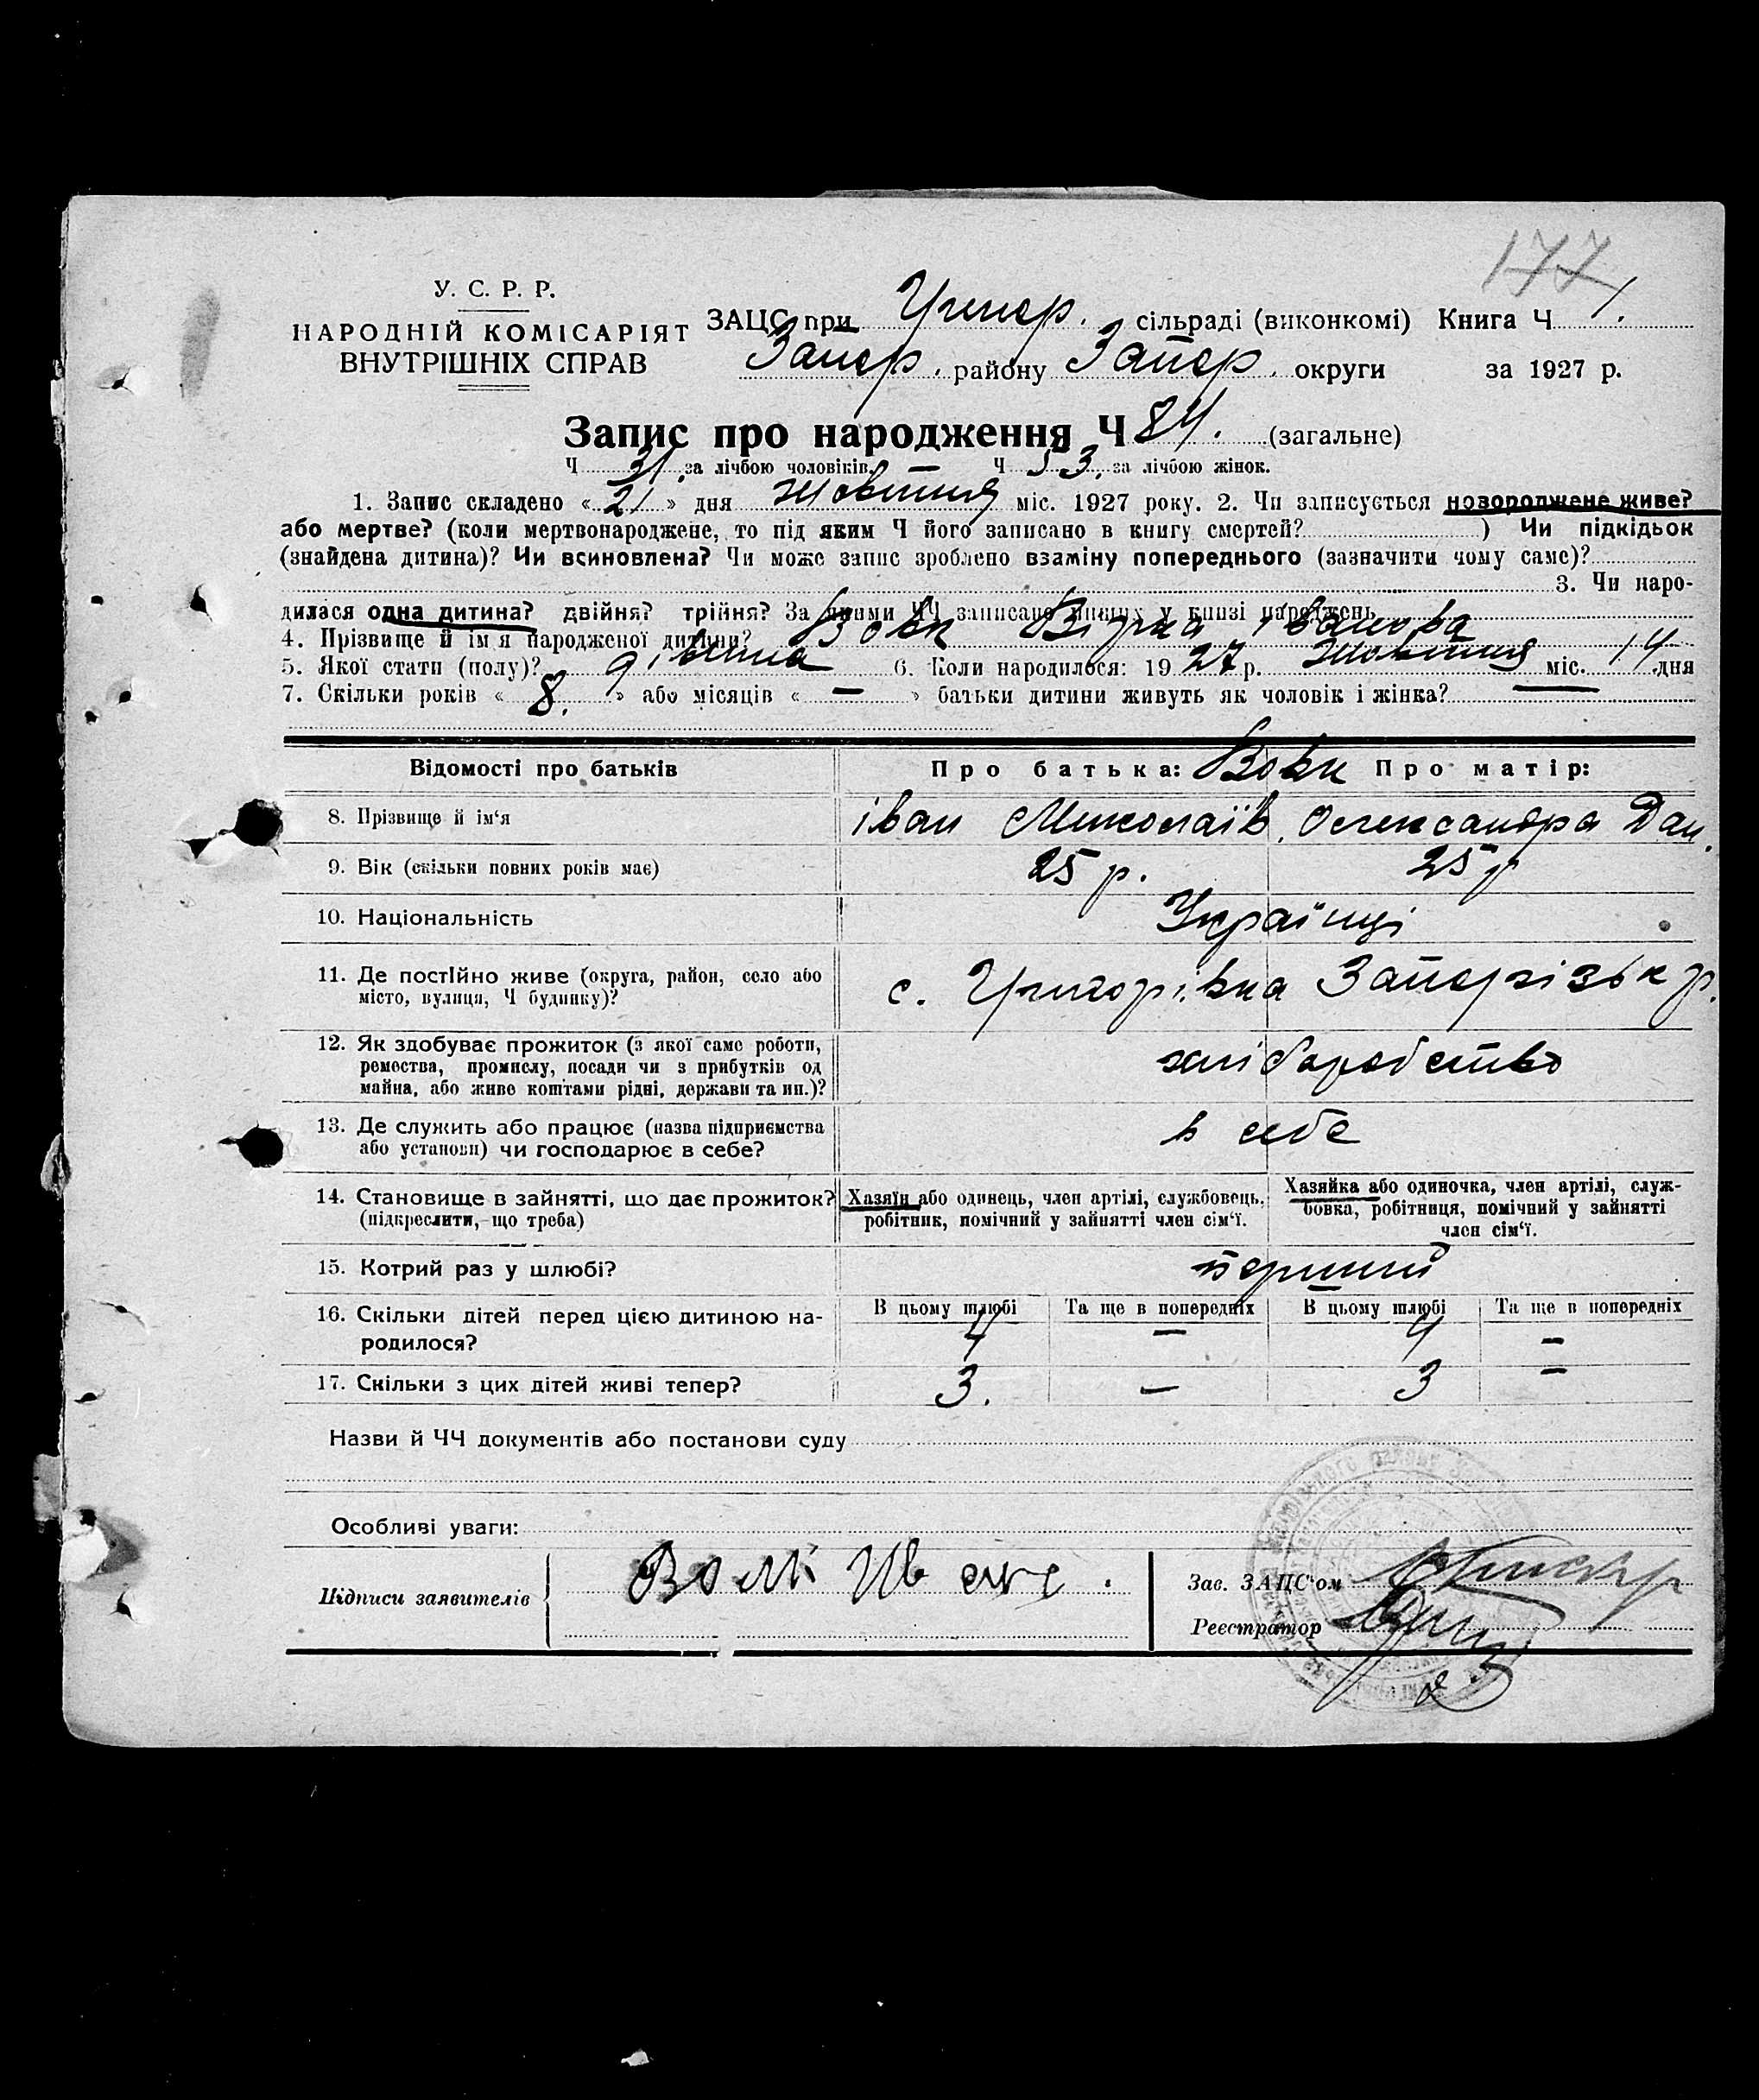 177
У. С. Р. Р.
НАРОДНІЙ КОМІСАРІЯТ
ВНУТРІШНІХ СПРАВ
ЗАЦС при Григор. сільраді (виконкомі) Книга Ч 1.
Запор. району Запор. округи за 1927 р.
Запис про народження Ч 84. (загальне)
Ч 31. за лічбою чоловіків. — Ч 53. за лічбою жінок.
1. Запис складено « 21 » дня Жовтня міс. 1927 року. 2. Чи записується новороджене живе?
або мертве? (коли мертвонароджене, то під яким Ч його записано в книгу смертей? ) Чи підкідьок
(знайдена дитина)? Чи всиновлена? Чи може запис зроблено взаміну попереднього (зазначити чому саме)?
3. Чи наро-
дилася одна дитина? двійня? трійня? За якими ЧЧ записано инших у книзі народжень
4. Прізвище й ім'я народженої дитини? Вовк Вірка Іванова
5. Якої стати (полу)? дівчина 6. Коли народилося: 1927 р. Жовтня міс. 14 дня
7. Скільки років « 8. » або місяців « — » батьки дитини живуть як чоловік і жінка? —
Відомості про батьків Про батька: Вовк Про матір:
8. Прізвище й ім'я іван Миколаїв. Олександра Дан.
9. Вік (скільки повних років має) 25 р. 25 р
10. Національність Українці
11. Де постійно живе (округа, район, село або с. Григорівка Запорізьк р.
місто, вулиця, Ч будинку)?
12. Як здобуває прожиток (з якої саме роботи, хліборобство
ремества, промислу, посади чи з прибутків од
майна, або живе коштами рідні, держави та ин.)?
13. Де служить або працює (назва підприємства в себе
або установи) чи господарює в себе?
14. Становище в зайнятті, що дає прожиток? Хазяїн або одинець, член артілі, службовець, Хазяйка або одиночка, член артілі, служ-
(підкреслити, що треба) робітник, помічний у зайнятті член сім'ї. бовка, робітниця, помічний у зайнятті
член сім'ї.
15. Котрий раз у шлюбі? перший
16. Скільки дітей перед цією дитиною на- В цьому шлюбі Та ще в попередніх В цьому шлюбі Та ще в попередніх
родилося? 4 — 4 —
17. Скільки з цих дітей живі тепер? 3. — 3 —
Назви й ЧЧ документів або постанови суду
Особливі уваги:
Підписи заявителів Зав. ЗАЦС'ом
Реєстратор